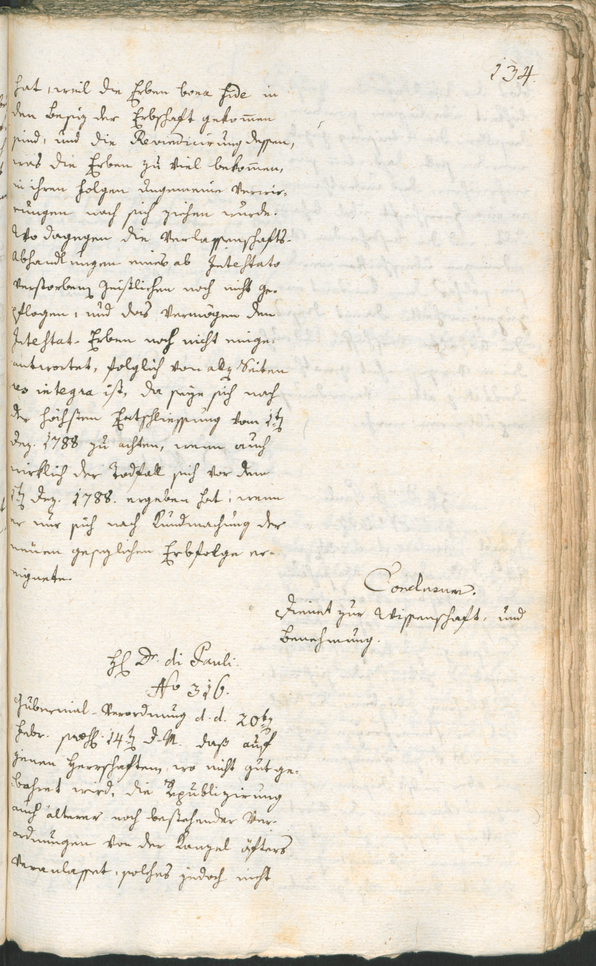 134
hat, weil die Erben bona fide in
den Besitz der Erbschaft gekommen
sind, und die Revindicirung dessen,
was die Erben zu viel bekommen,
in ihren Folgen ungemeine Verwir-
rungen nach sich ziehen würde.
Wo dagegen die Verlassenschafts-
abhandlungen eines ab Intestato
verstorbenen Geistlichen noch nicht ge-
pflogen, und das Vermögen den
Intestat-Erben noch nicht einge-
antwortet, folglich von allen Seiten
res integra ist, da seye sich nach
der höchsten Entschliessung vom 1ten
Dez. 1788 zu achten, wenn auch
wirklich der Todfall sich vor dem
1ten Dez. 1788. ergeben hat, wenn
er nur sich nach Kundmachung der
neuen gesezlichen Erbfolge er-
eignete.
Conclusum.
Dienet zur Wissenschaft, und
Benehmung.
H. Dr. di Pauli.
No 316.
Gubernial-Verordnung d. d. 20ten
Febr. 14ten d. M. daß auf
jenen Herrschaften, wo nicht gut ge-
bahret wird, die Republizirung
auch älterer noch bestehender Ver-
ordnungen von der Kanzel öfters
veranlasset, solches jedoch nicht